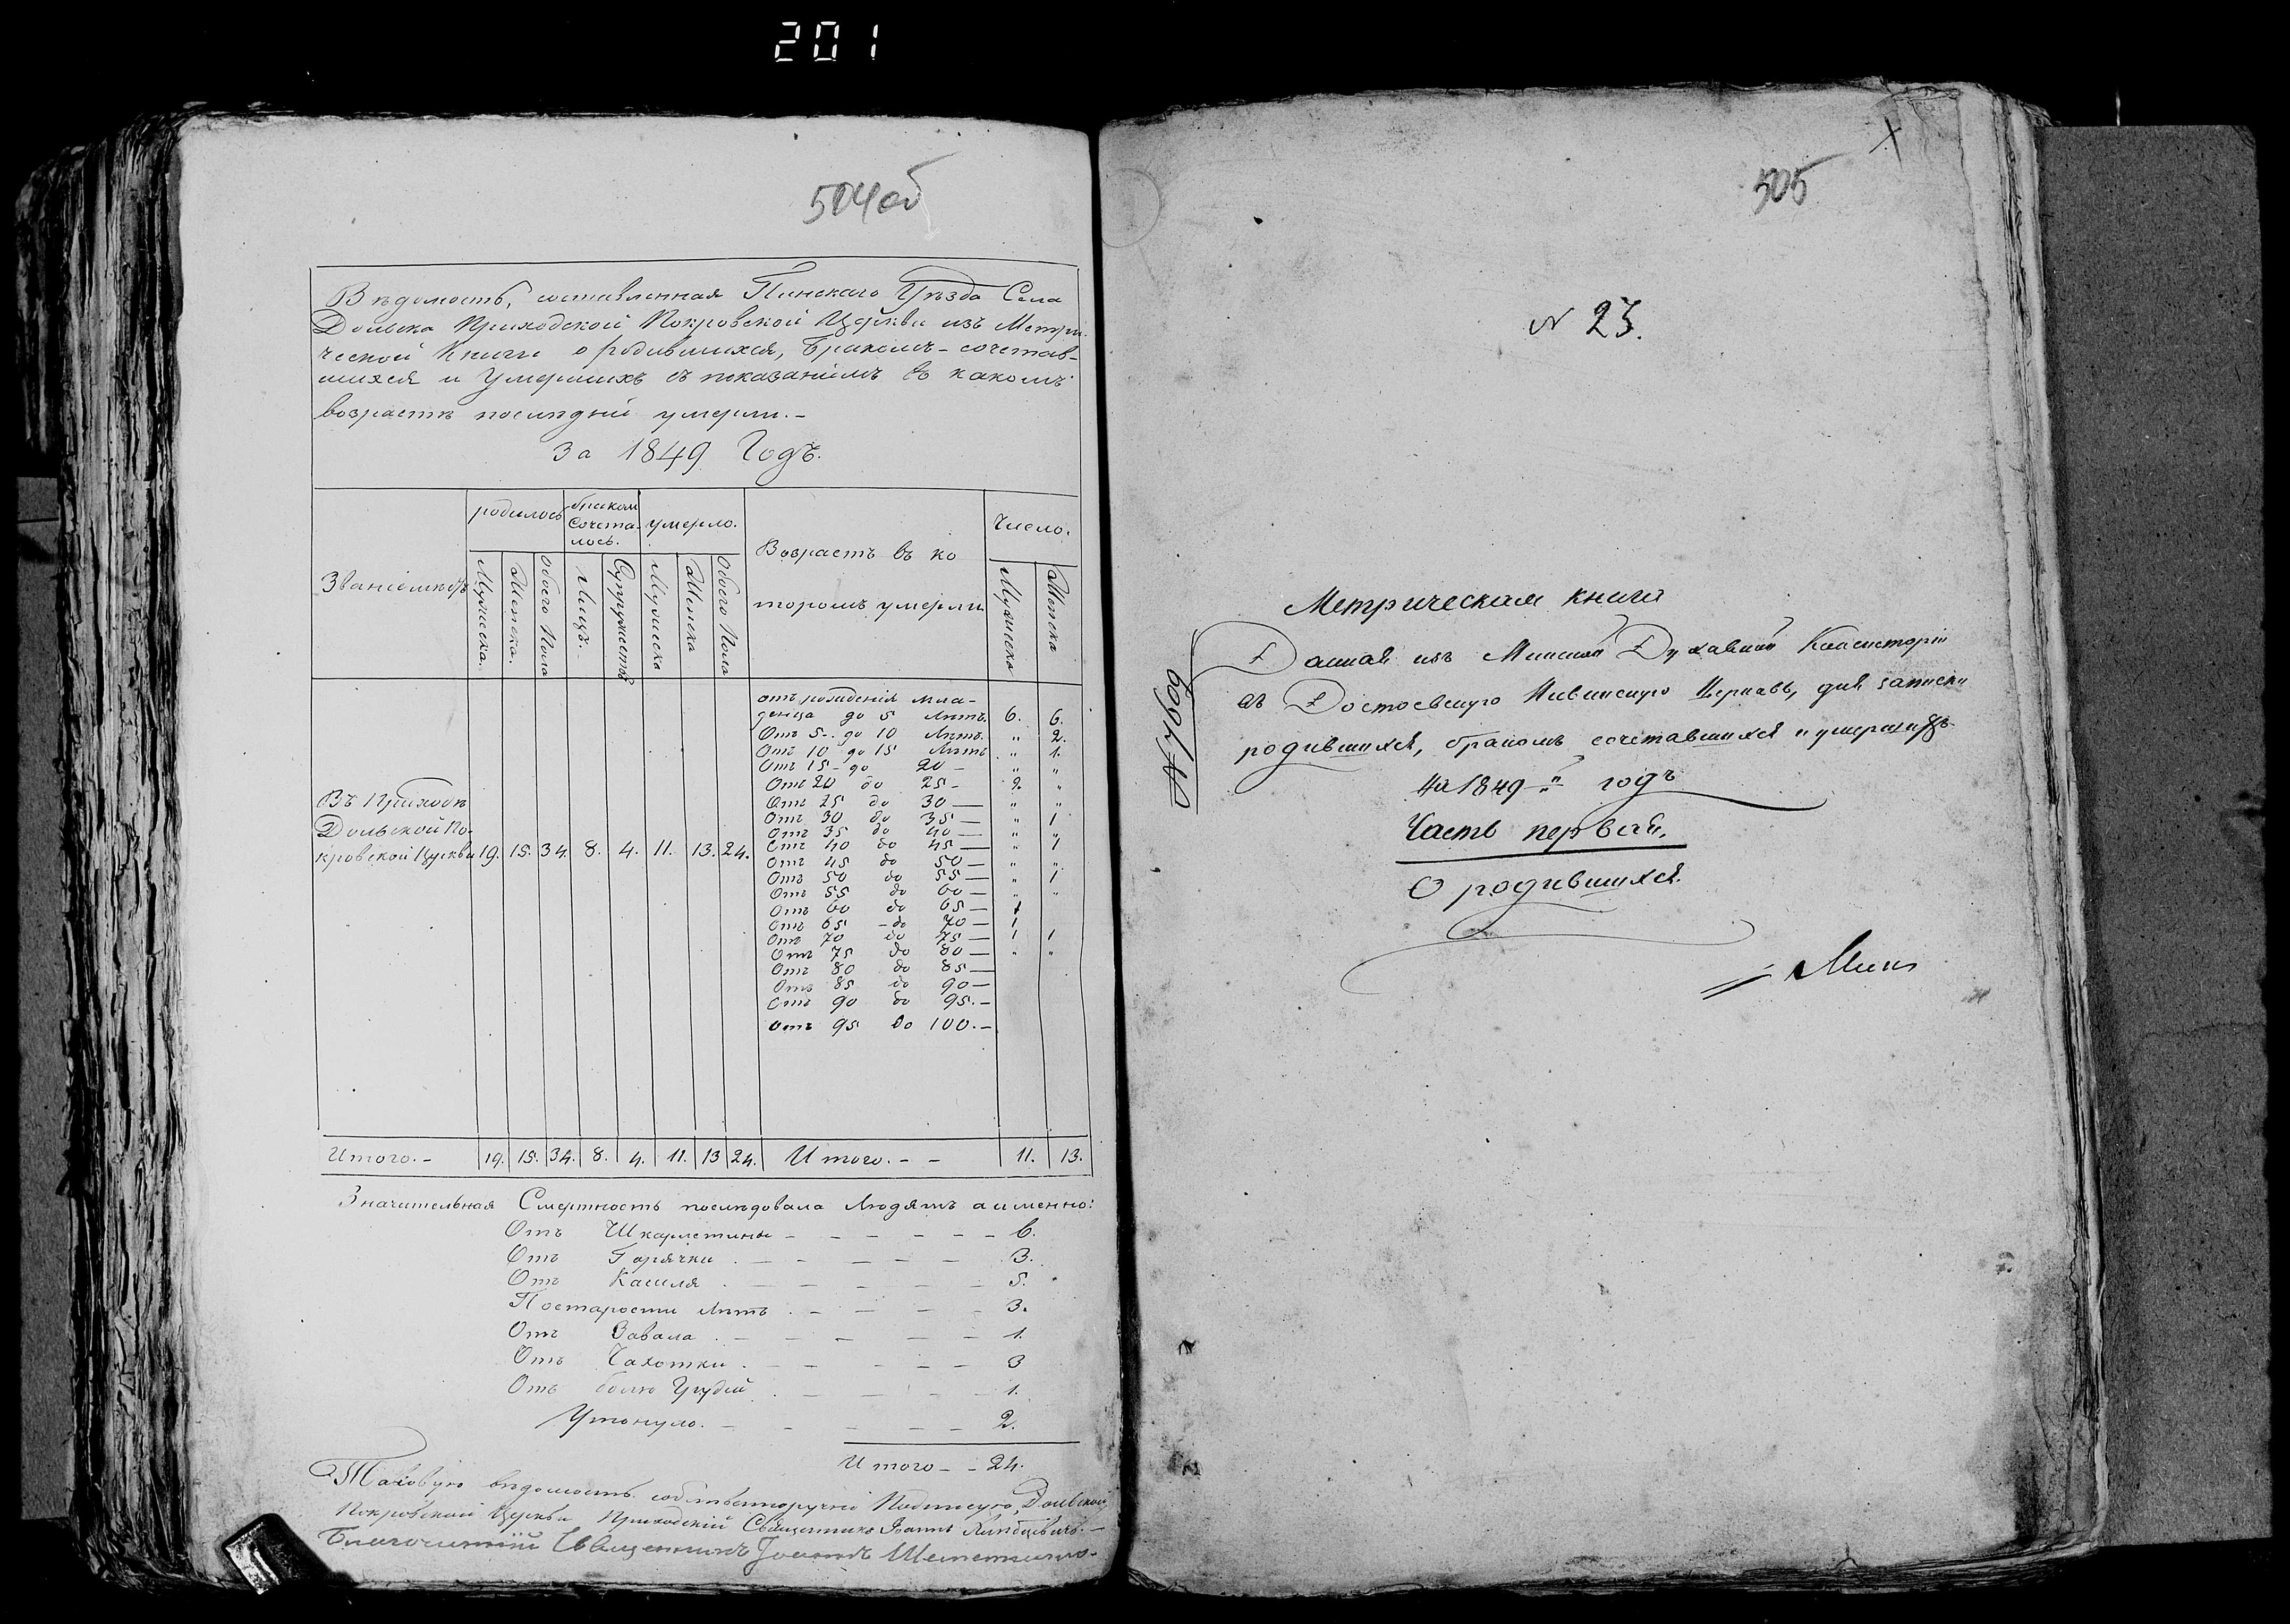 201
504об
Вѣдомость, составленная Пинскаго Уѣзда Села
Дольска Приходской Покровской Церкви изъ Метри-
ческой Книги о родившихся, Бракомъ-сочетав-
шихся и Умершихъ съ показаніемъ въ какомъ
возрастѣ послѣдній умерли.-
За 1849 Годъ.
родилось бракомъ сочета-лось. умерло. Возрастъ въ ко Число.
Мужеска. Женска. Обоего Пола Лицъ. Супружествъ Мужеска Женска Обоего Пола торомъ умерли Мужеска Женска
отъ рожденія мла-
денца до 5 Лѣтъ. 6. 6.
Отъ 5-. до 10 Лѣтъ. " 2.
Отъ 10 до 15 Лѣтъ " 1.
Отъ 15 - до 20 - " "
Отъ 20 до 25 - 2. "
Отъ 25 до 30 — " "
Отъ 30 до 35 — " 1
Отъ 35 до 40 — " "
Отъ 40 до 45 — " 1
Отъ 45 до 50 — " "
Отъ 50 до 55 — " 1
Отъ 55 до 60 — " "
Отъ 60 до 65 — 1
Отъ 65 - до 70 — 1
Отъ 70 до 75 — 1 1
Отъ 75 до 80 — " "
Отъ 80 до 85 —
Отъ 85 до 90 —
Отъ 90 до 95. -
Отъ 95 до 100. -
Въ Приходѣ
Дольской По-
кровской Церкви 19. 15. 34. 8. 4. 11. 13. 24.
Итого. - 19. 15. 34. 8. 4. 11. 13 24. Итого. - - 11. 13.
Значительная Смертность послѣдовала Людямъ а именно:
Отъ Шкарлетины - - - - - - - 6.
Отъ Горячки . - - - - - 3.
Отъ Кашля . - - - - - 5.
По старости лѣтъ . - - - - 3.
Отъ Завала . - - - - - 1.
Отъ Чахотки . - - - - - 3
Отъ болю Грудей . - - - - 1.
Утонуло. - - - - - 2.
Итого - - 24.
Таковую вѣдомость собственноручно Подписую, Дольской
Покровской Церкви Приходскій Священникъ Іоаннъ
Благочинный Священникъ Іоаннъ
505
N 23.
Метрическая книга
Данная изъ Минской Духовной Консисторіи
въ Достоевскую Церковь, для записки
родившихся, бракомъ сочетавшихся и умершихъ
на 1849-й годъ
Часть первая.
О родившихся.